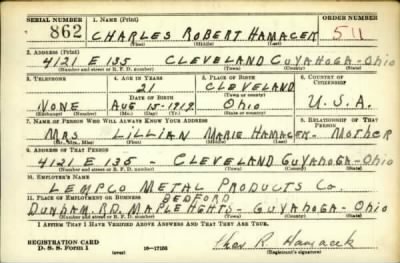 SERIAL NUMBER 1. NAME (Print) ORDER NUMBER
862 CHARLES ROBERT HAMACEK 511
(First) (Middle) (Last)
2. ADDRESS (Print)
4121 E 135 CLEVELAND CUYAHOGA-Ohio
(Number and street or R. F. D. number) (Town) (County) (State)
3. TELEPHONE 4. AGE IN YEARS 5. PLACE OF BIRTH 6. COUNTRY OF CITIZENSHIP
21 CLEVELAND
DATE OF BIRTH (Town or county)
NONE AUG 15-1919 Ohio U.S.A.
(Exchange) (Number) (Mo.) (Day) (Yr.) (State or country)
7. NAME OF PERSON WHO WILL ALWAYS KNOW YOUR ADDRESS 8. RELATIONSHIP OF THAT PERSON
MRS LILLIAN MARIE HAMACEK - MOTHER
(Mr., Mrs., Miss) (First) (Middle) (Last)
9. ADDRESS OF THAT PERSON
4121 E 135 - CLEVELAND CUYAHOGA-Ohio
(Number and street or R. F. D. number) (Town) (County) (State)
10. EMPLOYER'S NAME
LEMPCO METAL PRODUCTS Co.
11. PLACE OF EMPLOYMENT OR BUSINESS BEDFORD
DUNHAM.RD. MAPLE HGHTS - GUYAHOGA-Ohio
(Number and street or R. F. D. number) (Town) (County) (State)
I AFFIRM THAT I HAVE VERIFIED ABOVE ANSWERS AND THAT THEY ARE TRUE.
REGISTRATION CARD
D. S. S. Form 1 (over) 16-17105 Chas R. Hamacek
(Registrant's signature)